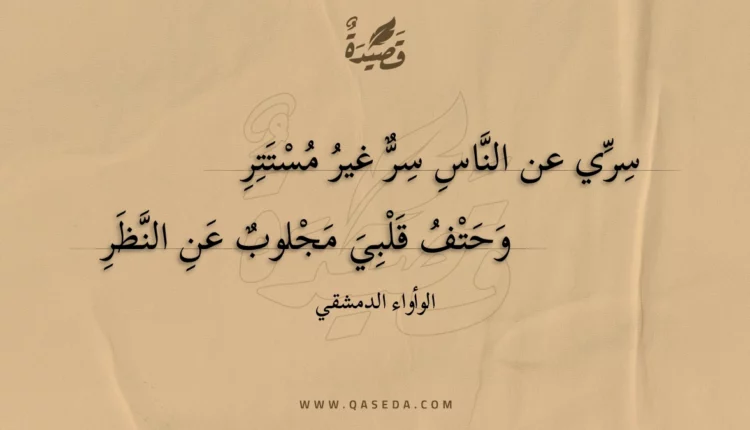 قَصِيدَةٌ
سِرِّي عن النَّاسِ سِرٌّ غيرُ مُسْتَتِرِ
وَحَتْفُ قَلْبِيَ مَجْلوبٌ عَنِ النَّظَرِ
الوأواء الدمشقي
WWW.QASEDA.COM